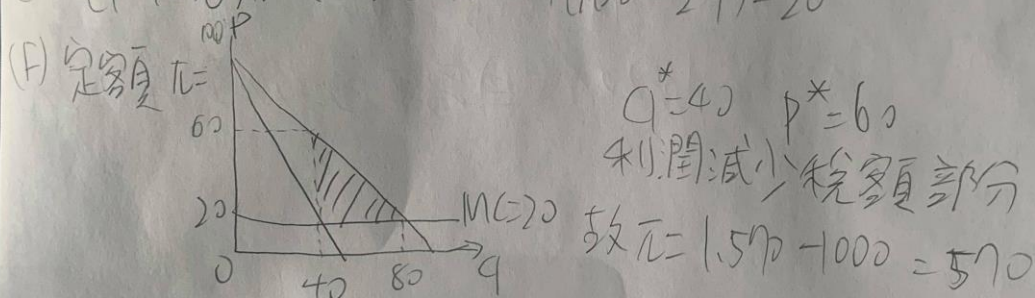 (F) 定額 π=
100 P
60
20
MC=20
0
40
80
q
q*=40 p*=60
利潤減少稅額部分
故π=1,570-1000=570